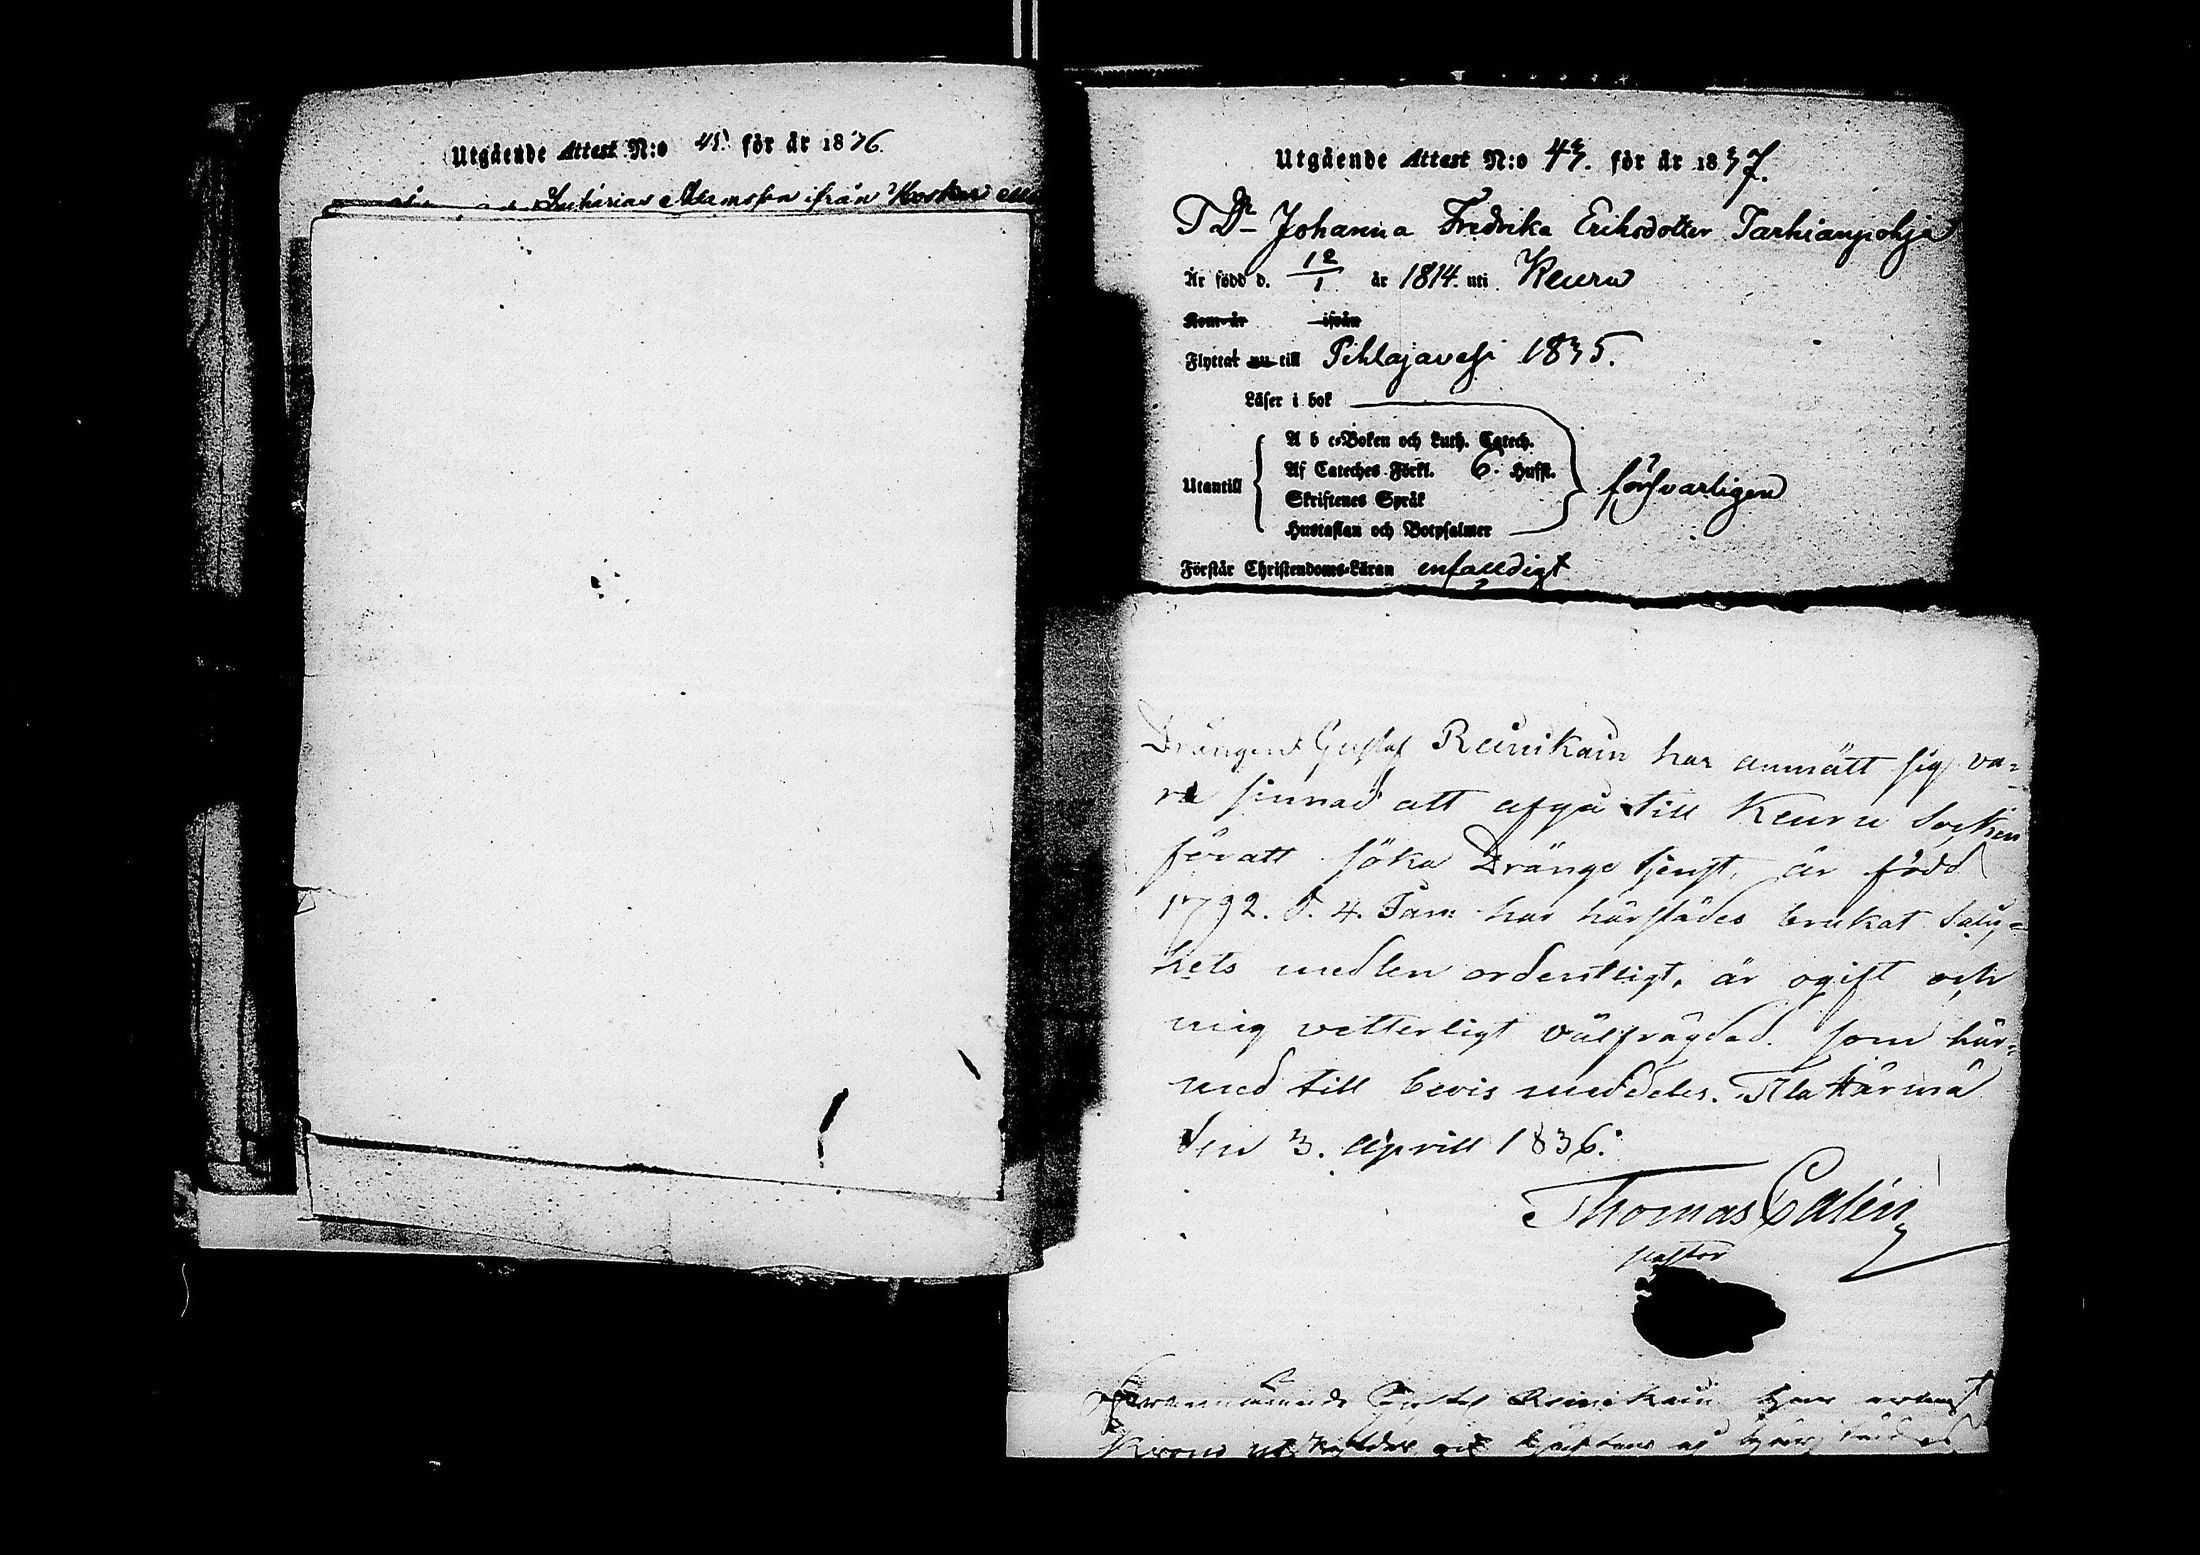 Utgående Attest N:o 41. för år 1836.
Zacharias Adamsson ifrån Koskei
Utgående Attest N:o 43. för år 1837.
TDr Johanna Fredrika Eriksdotter Tarhianpohja
Är född d. 12/1 år 1814. uti Keuru
Kom år ifrån
Flyttat nu till Pihlajavesi 1835.
Läser i bok
Utantill
A b c-Boken och Luth. Catech.
Af Cateches Förkl. 6. Hufst.
Skriftenes Språk
Hustaflan och Botpsalmer
försvarligen
Förstår Christendoms-Läran enfaldigt
Drängen Gustaf Reinikain har anmält sig va-
ra sinnad att afgå till Keuru Socken
för att söka Dränge tjenst, är född
1792. d. 4. Jan: har härstädes brukat Salig-
hets medlen ordentligt, är ogift och
mig vetterligt välfrägdad. som här-
med till bevis meddelas. Ala Härmä
den 3. Aprill 1836.
Thomas Calén
pastor
Gustaf Reinikain har
Krono